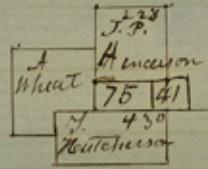 228
J. P.
Henerson
A
Wheat
75 41
J. 430
Hutcherson